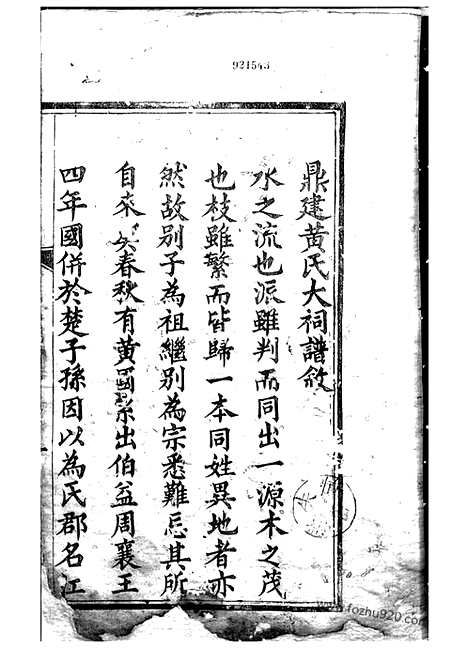 921543
鼎建黄氏大祠譜敘
水之流也派雖判而同出一源木之茂
也枝雖繁而皆歸一本同姓異地者亦
然故别子為祖繼别為宗悉難忘其所
自來矣春秋有黄國系出伯益周襄王
四年國併於楚子孫因以為氏郡名江
www.fozhu920.com